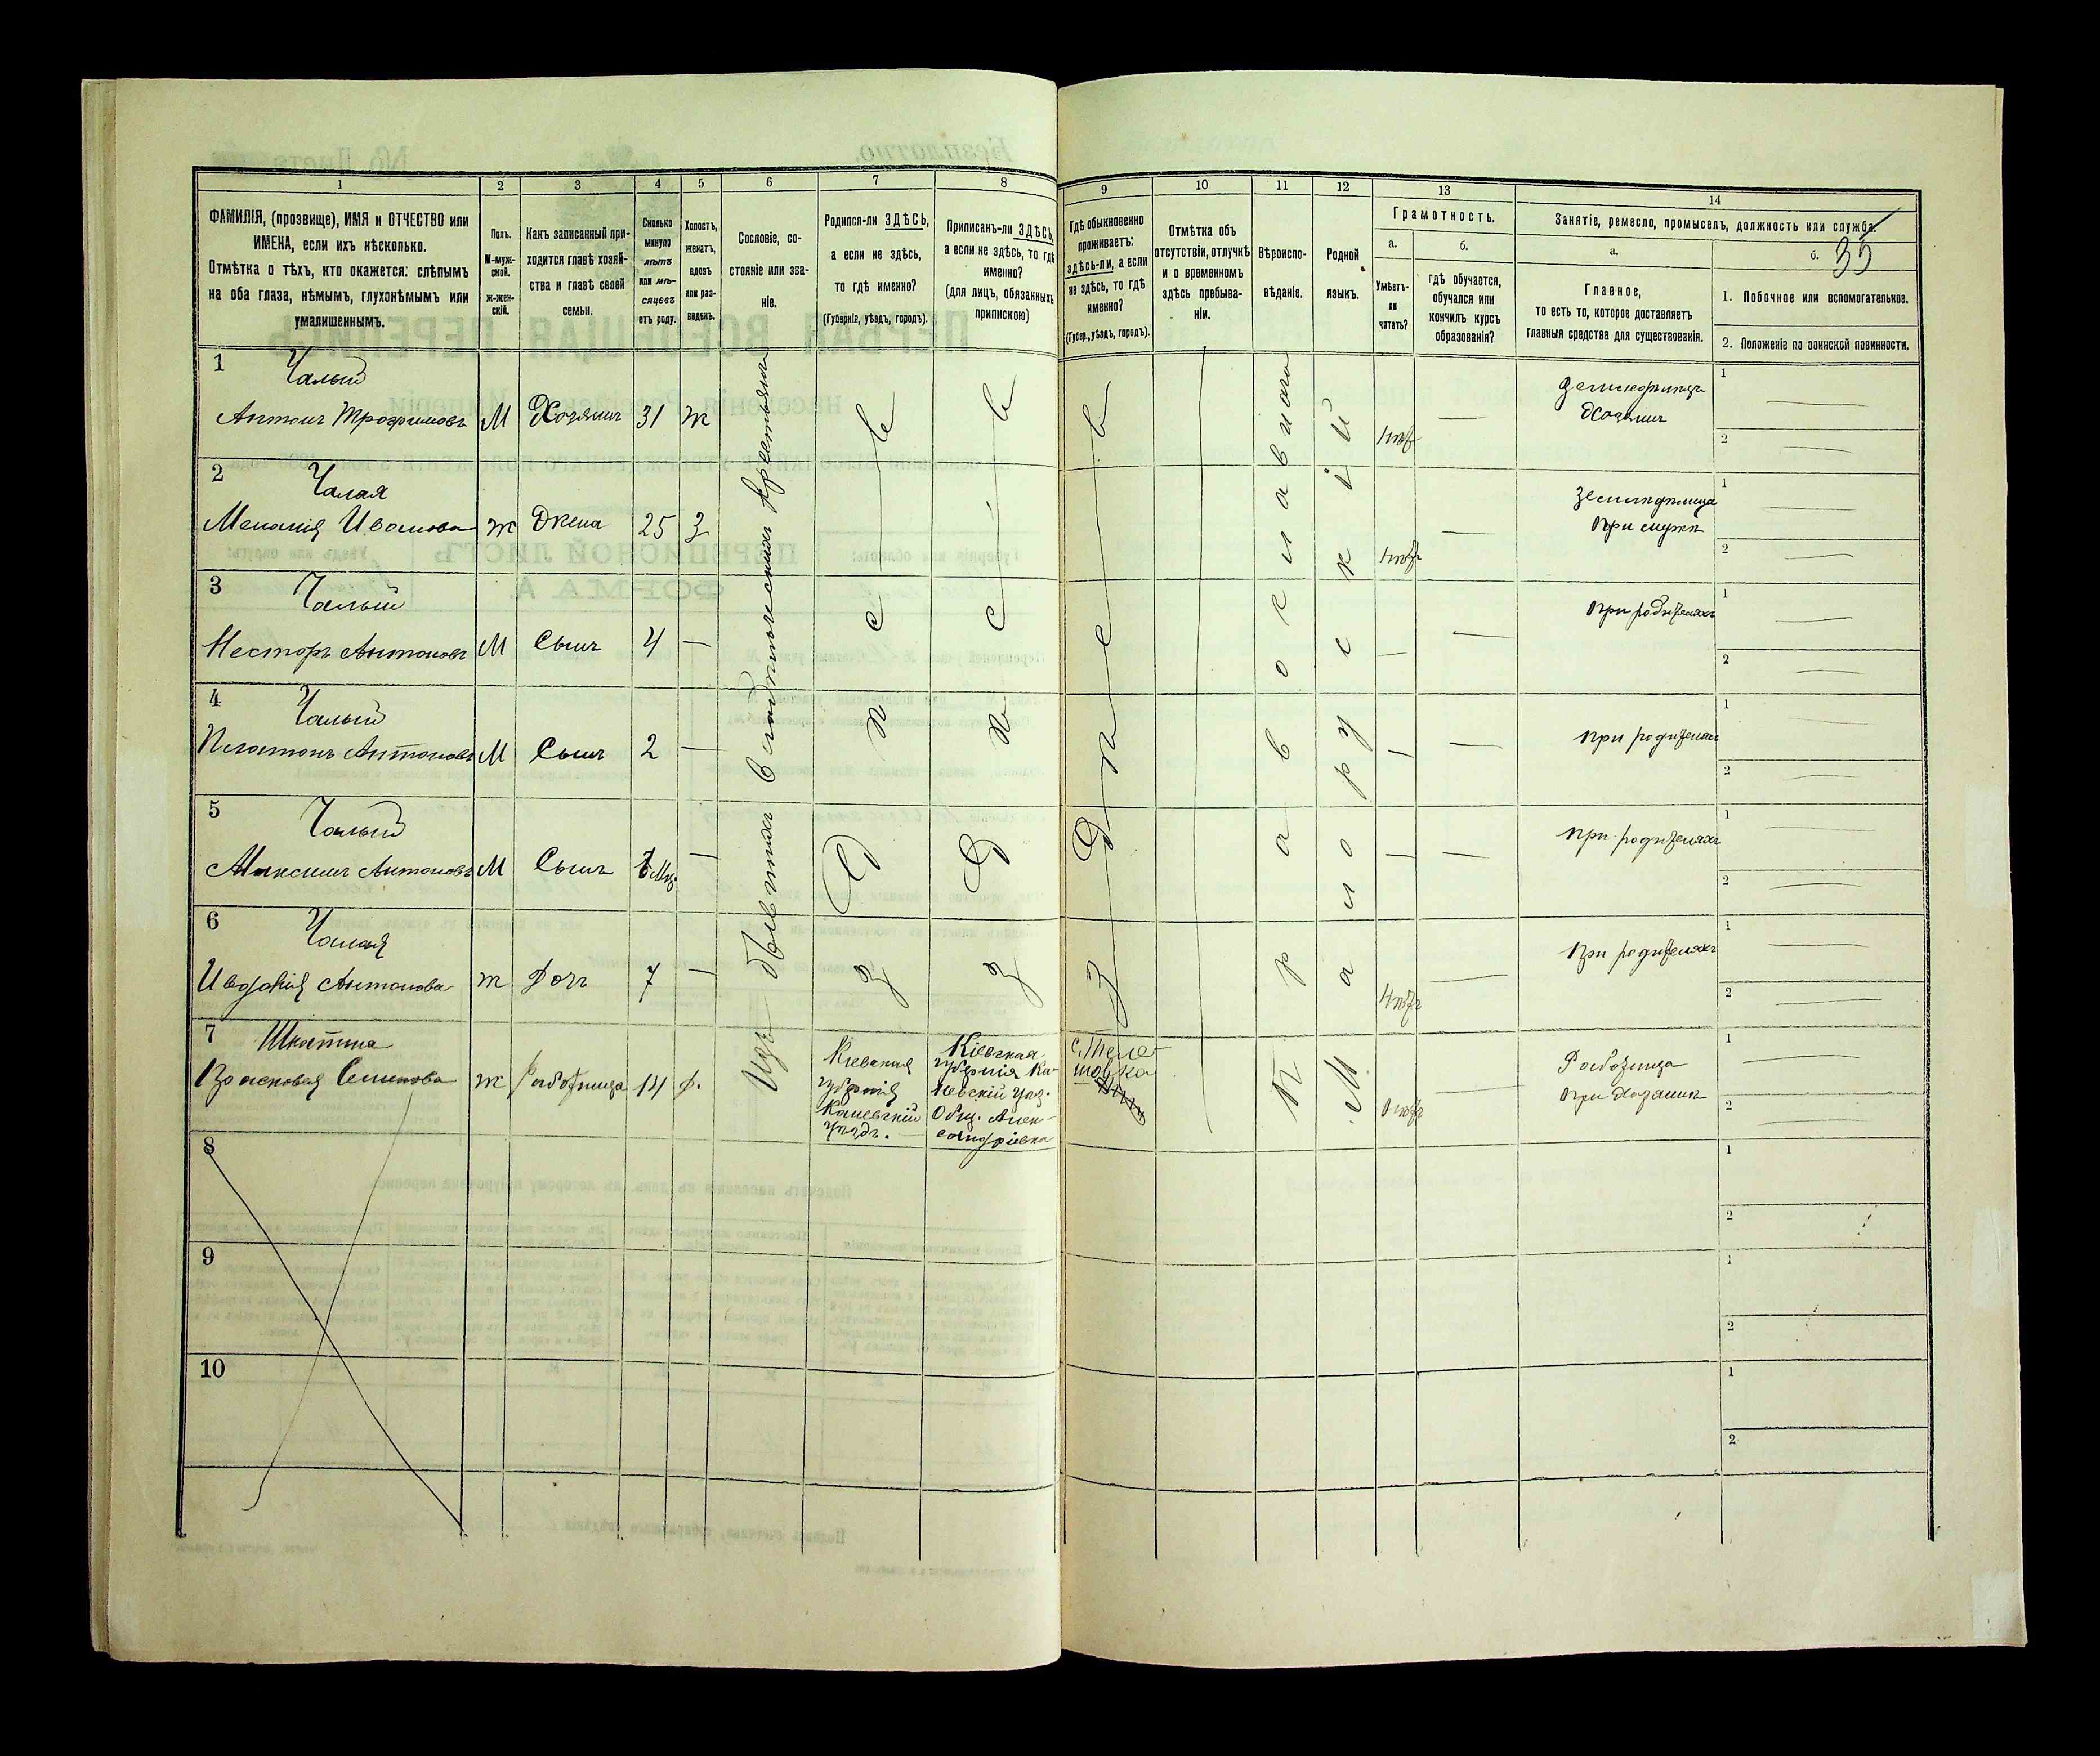 1
2
3
4
5
6
7
8
ФАМИЛІЯ, (прозвище), ИМЯ и ОТЧЕСТВО или
ИМЕНА, если ихъ нѣсколько.
Отмѣтка о тѣхъ, кто окажется: слѣпымъ
на оба глаза, нѣмымъ, глухонѣмымъ или
умалишеннымъ.
Полъ.
М-муж-
ской.
Ж-жен-
скій.
Какъ записанный при-
ходится главѣ хозяй-
ства и главѣ своей
семьи.
Сколько
минуло
лѣтъ
или мѣ-
сяцевъ
отъ роду.
Холостъ,
женатъ,
вдовъ
или раз-
веденъ.
Сословіе, со-
стояніе или зва-
ніе.
Родился-ли ЗДѢСЬ,
а если не здѣсь,
то гдѣ именно?
(Губернія, уѣздъ, городъ).
Приписанъ-ли ЗДѢСЬ,
а если не здѣсь, то гдѣ
именно?
(для лицъ, обязанныхъ
припискою)
9
10
11
12
13
14
Гдѣ обыкновенно
проживаетъ:
здѣсь-ли, а если
не здѣсь, то гдѣ
именно?
(Губер., уѣздъ, городъ).
Отмѣтка объ
отсутствіи, отлучкѣ
и о временномъ
здѣсь пребыва-
ніи.
Вѣроиспо-
вѣданіе.
Родной
языкъ.
Грамотность.
а.
Умѣетъ-
ли
читать?
б.
гдѣ обучается,
обучался или
кончилъ курсъ
образованія?
Занятіе, ремесло, промыселъ, должность или служба.
а.
Главное,
то есть то, которое доставляетъ
главныя средства для существованія.
б.
35
1. Побочное или вспомогательное.
2. Положеніе по воинской повинности.
1
Чалый
Антонъ Трофимовъ
М
Хозяинъ
31
Ж
Земледѣлецъ
Хозяинъ
1
2
2
Чалая
Меланія Иванова
Ж
Жена
25
З
Земледѣлица
при мужѣ
1
2
3
Чалый
Несторъ Антоновъ
М
Сынъ
4
при родителяхъ
1
2
4
Чалый
Платонъ Антоновъ
М
Сынъ
2
при родителяхъ
1
2
5
Чалый
Максимъ Антоновъ
М
Сынъ
при родителяхъ
1
2
6
Чалая
Ивдокія Антонова
Ж
Доч
7
При родителяхъ
1
2
Изъ бывшихъ Крестьянъ
Здѣсь
Здѣсь
Здѣсь
Православнаго
Малорускій
7
Семенова
Ж
Работница
14
Д.
Кіевская
губернія
Каневскій
уѣздъ.
Кіевская
губернія Ка-
невскій уѣз.
Общ. Алек-
сандрівка
Работница
при Хозяинѣ
1
2
8
1
2
9
1
2
10
1
2